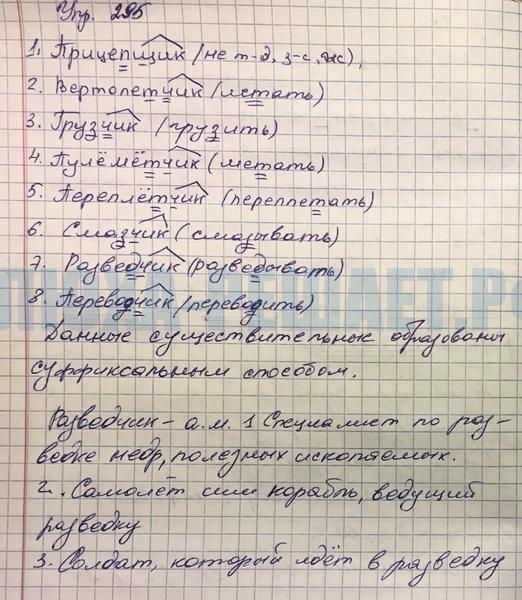 Упр. 295
1. Прицепщик (не т-д, з-с, ж),
2. Вертолетчик (летать)
3. Грузчик (грузить)
4. Пулемётчик (метать)
5. Переплётчик (переплетать)
6. Смазчик (смазывать)
7. Разведчик (разведывать)
8. Переводчик (переводить)
Данные существительные образованы
суффиксальным способом.
Разведчик - а.м. 1 Специалист по раз-
ведке недр, полезных ископаемых.
2. Самолёт или корабль, ведущий
разведку
3. Солдат, который идёт в разведку